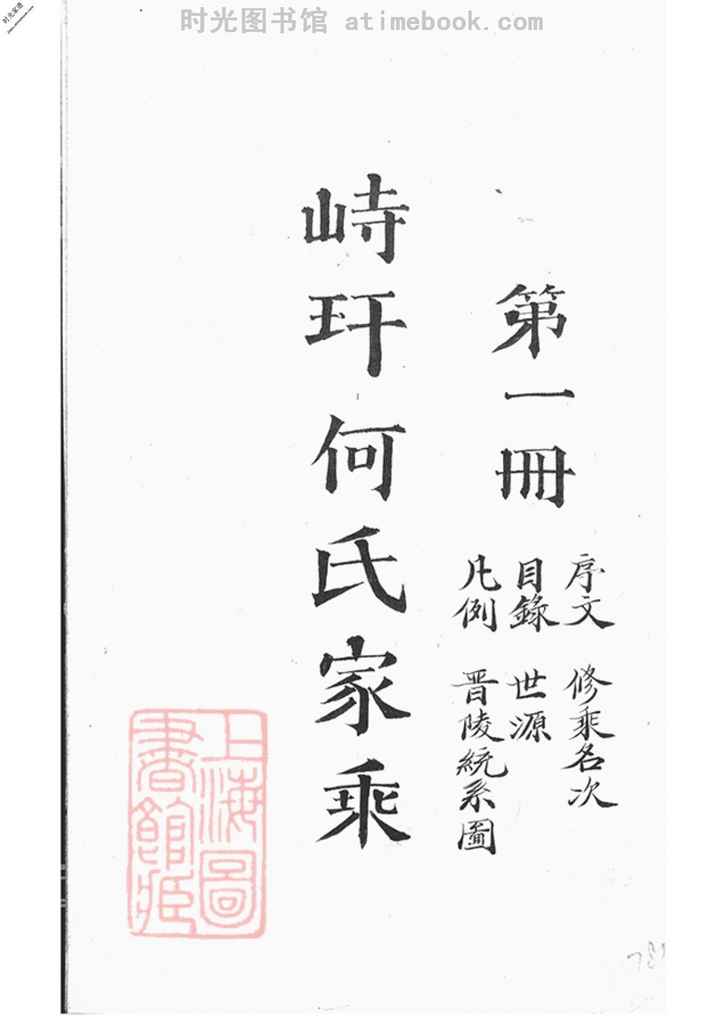 时光图书馆 atimebook.com
第一冊
序文 修乘名次
目錄 世源
凡例 晋陵統系圖
峙玕何氏家乘
上海圖書館藏